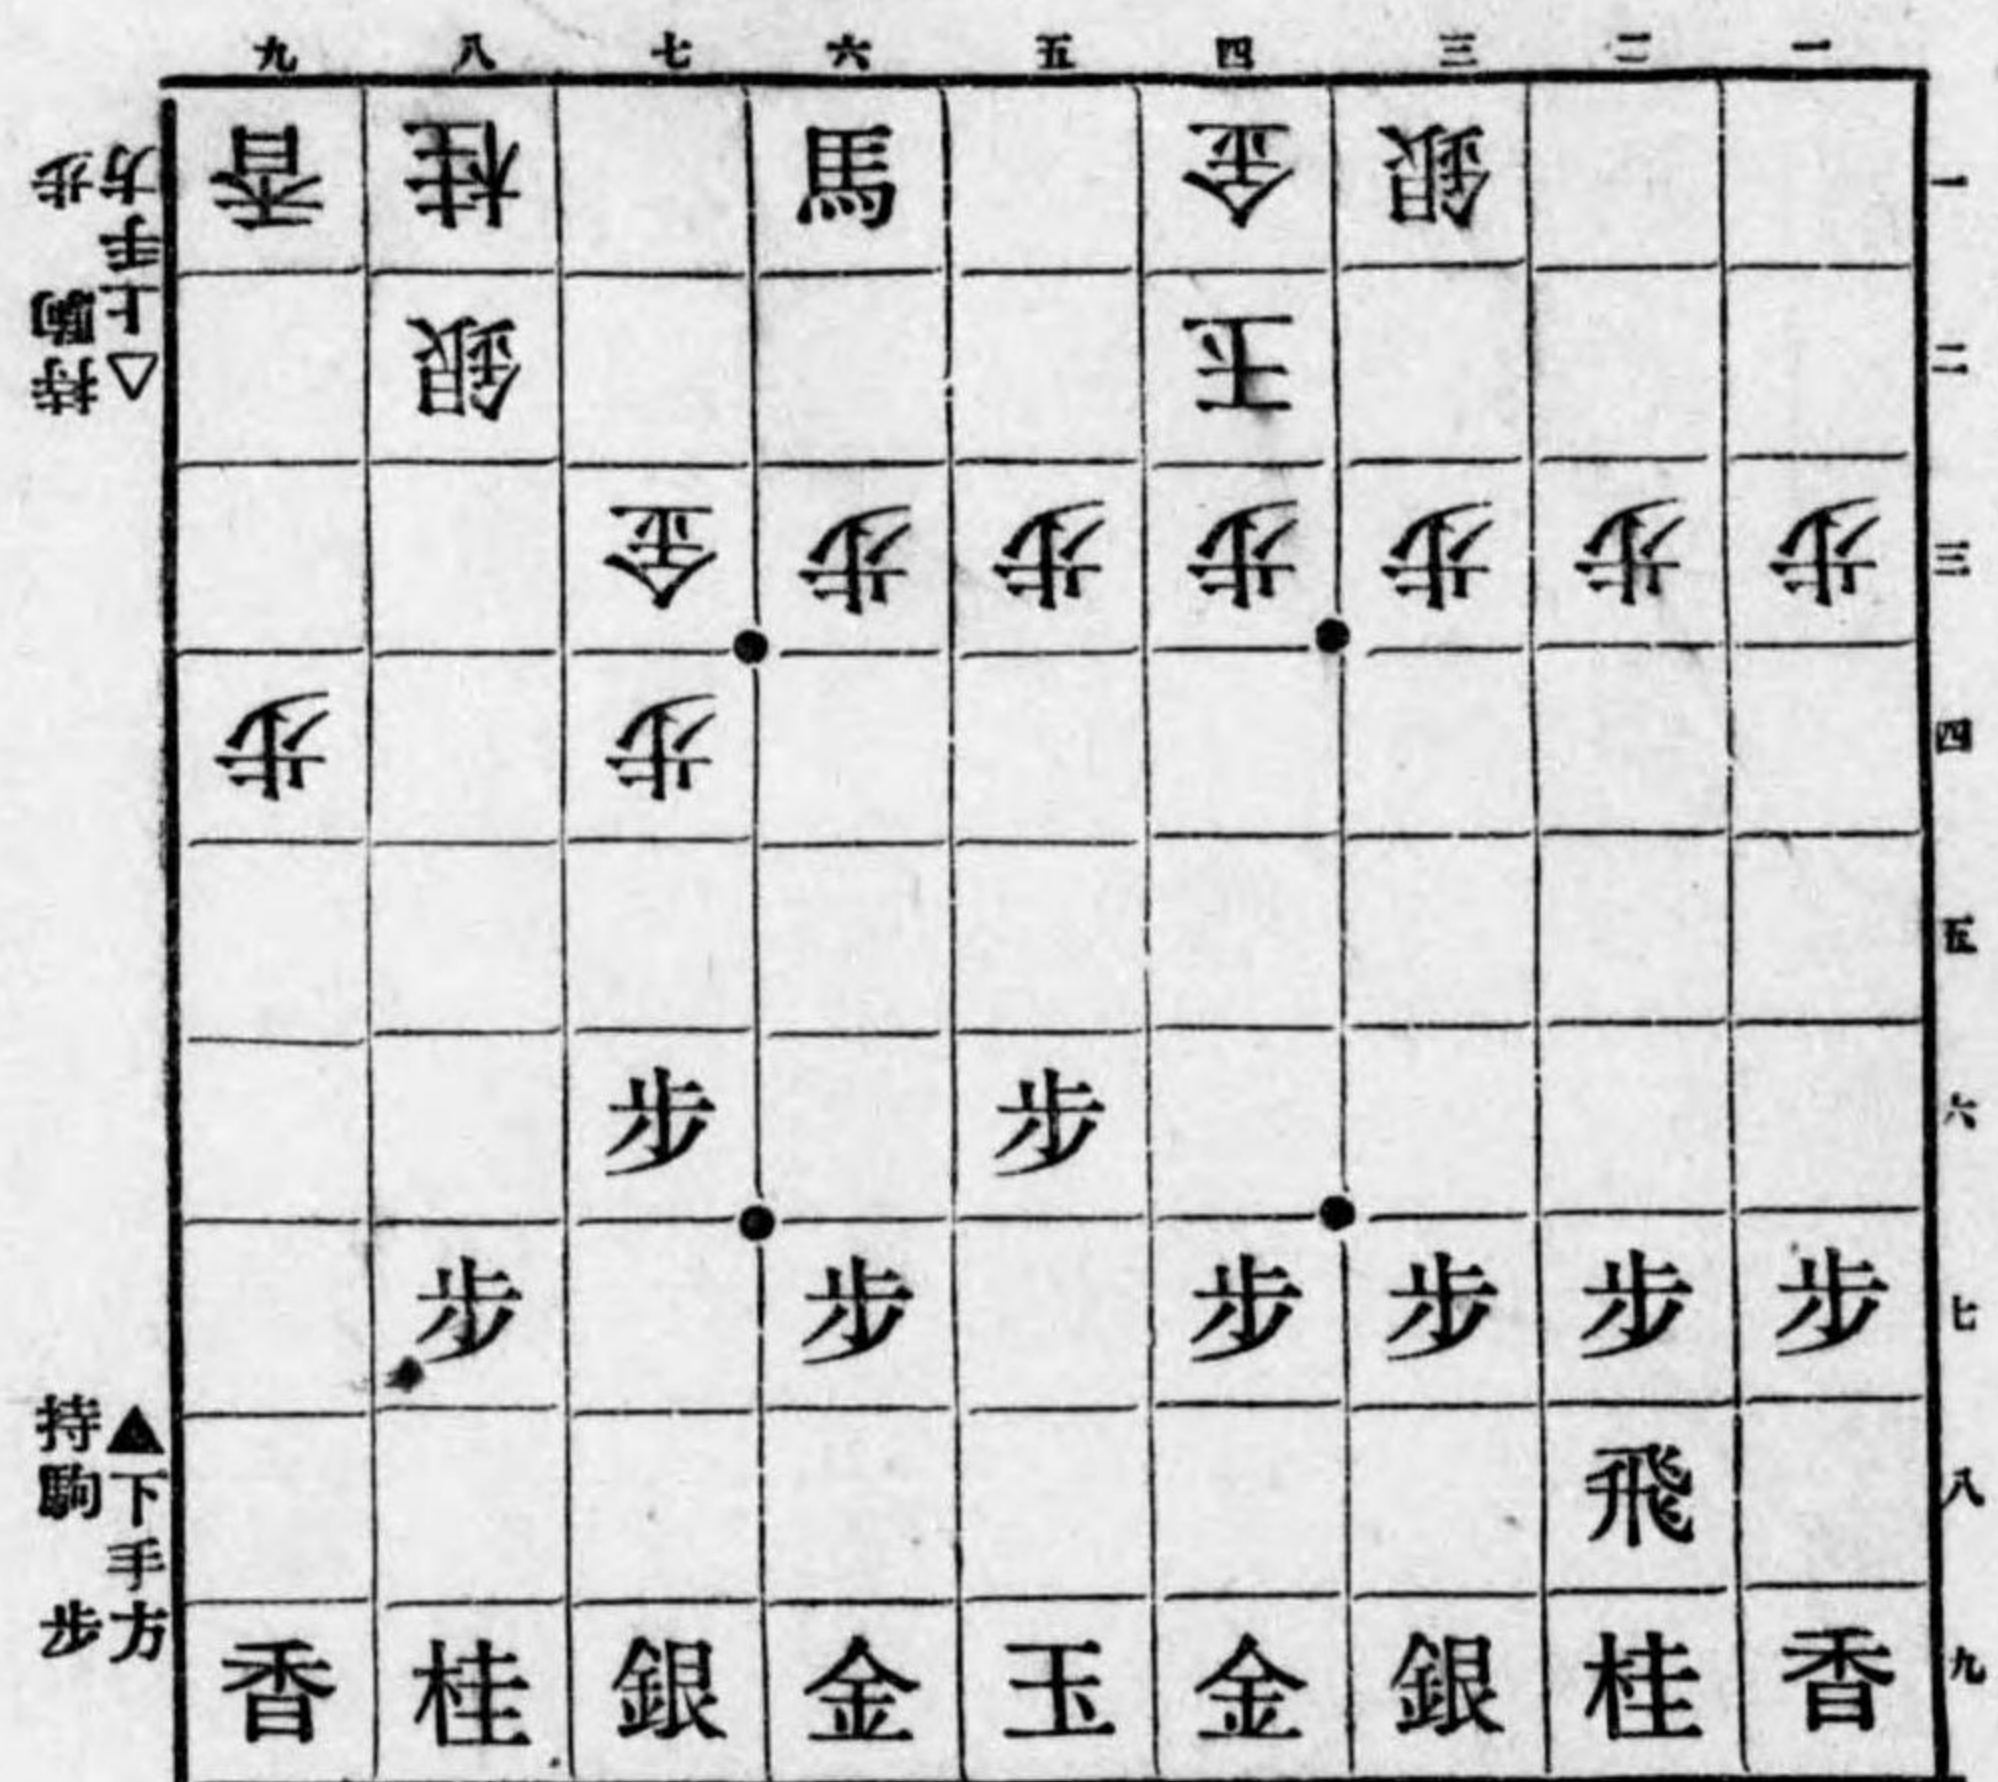 九 八 七 六 五 四 三 二 一
香 桂 馬 金 銀 一
銀 玉 二
金 歩 歩 歩 歩 歩 歩 三
歩 歩 四
五
歩 歩 六
歩 歩 歩 歩 歩 歩 七
飛 八
香 桂 銀 金 玉 金 銀 桂 香 九
△上手方
持駒 歩
▲下手方
持駒 歩